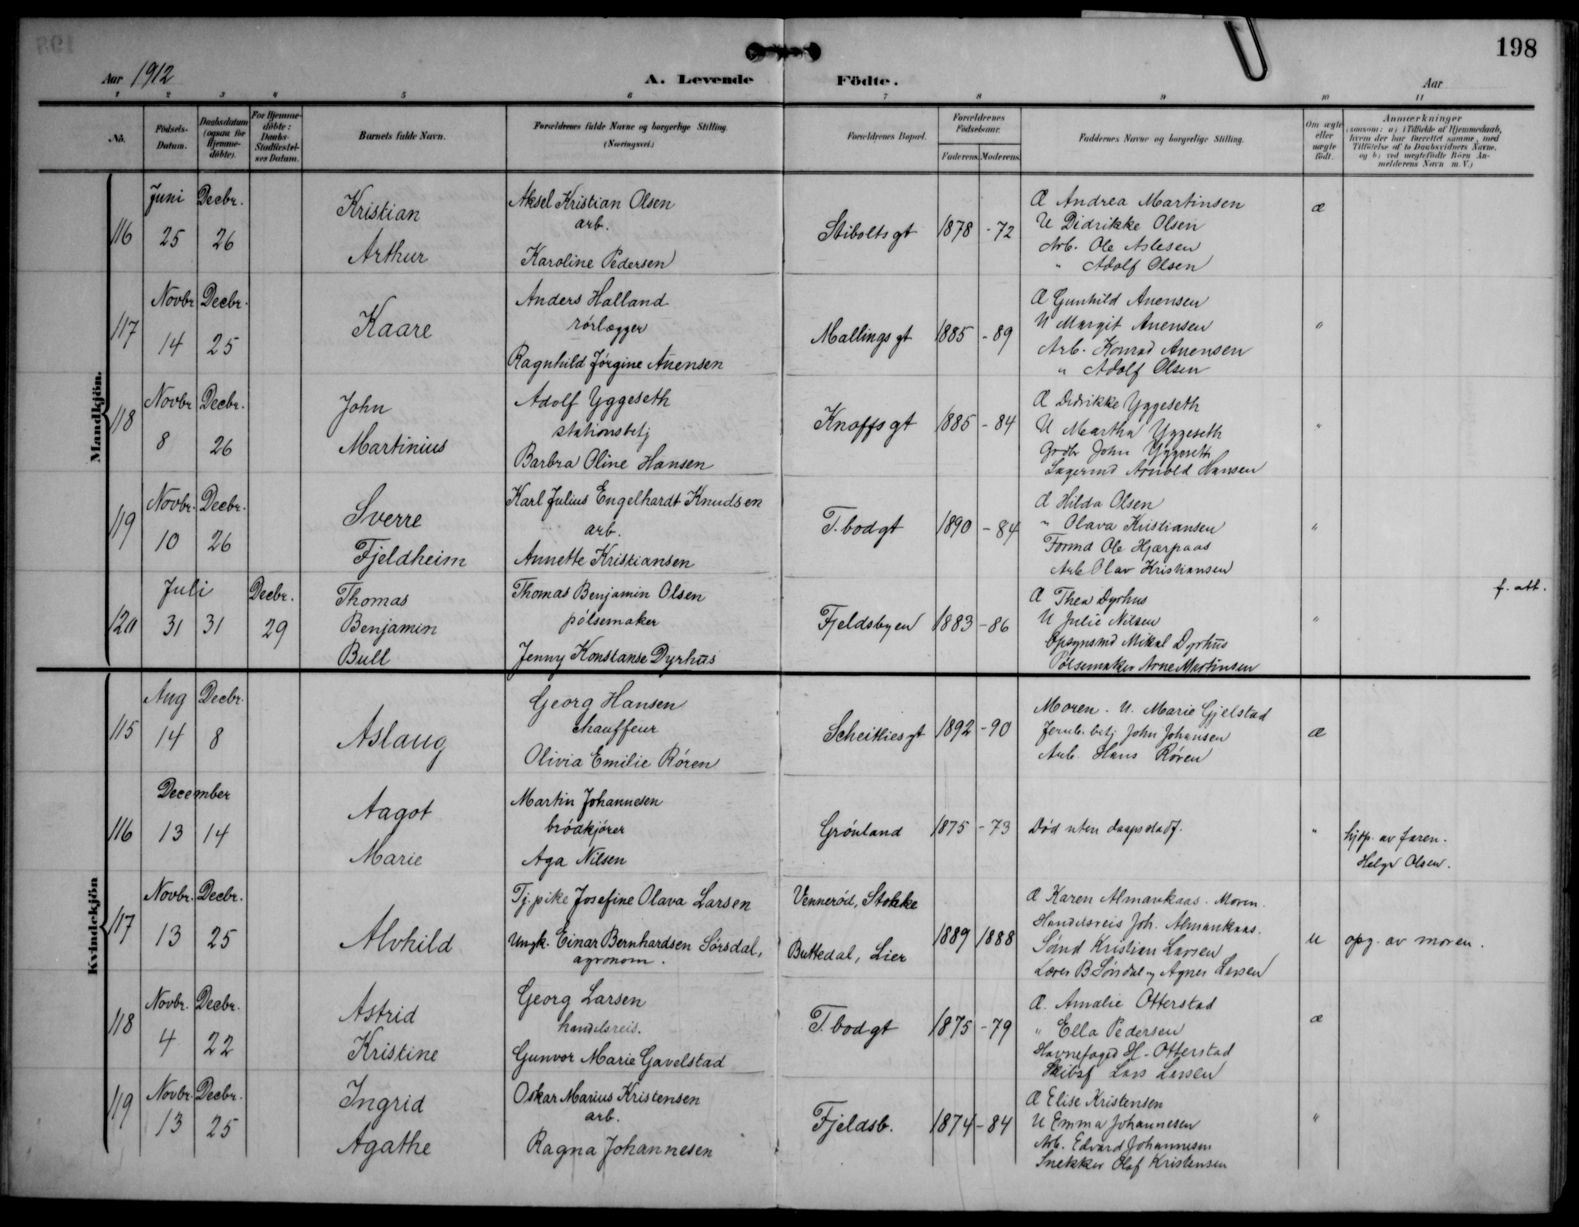 198
Aar 1912 A. Levende Födte. Aar
1 2 3 4 5 6 7 8 9 10 11
No. Födsels-Datum. Daabsdatum (ogsaa for Hjemmedöbte). For Hjemmedöbte: Daabs-Stadfæstelses Datum. Barnets fulde Navn. Forældrenes fulde Navne og borgerlige Stilling. (Næringsvei.) Forældrenes Bopæl. Forældrenes Födselsaar. Faderens. Moderens. Faddernes Navne og borgerlige Stilling. Om ægte eller uægte födt. Anmærkninger (saasom: a) i Tilfælde af Hjemmedaab, hvem der har forrettet samme, med Tilföielse af to Daabsvidners Navne, og b) ved uægtefödte Börn Anmelderens Navn m. V.)
Mandkjön.
116 Juni 25 Decbr. 26
Kristian
Arthur
Aksel Kristian Olsen
arb.
Karoline Pedersen
Stiboltsgt 1878 - 72
Æ Andrea Martinsen
U Didrikke Olsen
Arb. Ole Aslesen
" Adolf Olsen
æ
117 Novbr 14 Decbr. 25
Kaare
Anders Halland
rörlægger
Ragnhild Jørgine Anensen
Mallings gt 1885 - 89
Æ Gunhild Anensen
U Margit Anensen
Arb. Konrad Anensen
" Adolf Olsen
"
118 Novbr 8 Decbr. 26
John
Martinius
Adolf Yggeseth
stationsbetj
Barbra Oline Hansen
Knoffs gt 1885 - 84
Æ Didrikke Yggeseth
U Martha Yggeseth
Grdbr John Yggeseth
Lagermd Arnold Hansen
"
119 Novbr. 10 Decbr. 26
Sverre
Fjeldheim
Karl Julius Engelhardt Knudsen
arb.
Annette Kristiansen
T. bodgt 1890 - 84
Æ Hilda Olsen
" Olava Kristiansen
Formd Ole Hjærpaas
Arb Olav Kristiansen
"
120 Juli 31 31 Decbr. 29
Thomas
Benjamin
Bull
Thomas Benjamin Olsen
pölsemaker
Jenny Konstanse Dyrhus
Fjeldsbyen 1883 - 86
Æ Thea Dyrhus
U Julie Nilsen
Opsynsmd Mikal Dyrhus
Pölsemaker Arne Martinsen
"
f. att.
Kvindekjön
115 Aug 14 Decbr. 8
Aslaug
Georg Hansen
chauffeur
Olivia Emilie Røren
Scheitliesgt 1892 - 90
Moren. U. Marie Gjelstad
Jernb. betj John Johansen
Arb. Hans Røren
æ
116 December 13 14
Aagot
Marie
Martin Johannesen
brödkjører
Aga Nilsen
Grönland 1875 - 73
Död uten daapsdadf.
"
hjdp. av faren.
Helge Olsen.
117 Novbr. 13 Decbr. 25
Alvhild
Tj. pike Josefine Olava Larsen
Ungk. Einar Bernhardsen Sörsdal,
agronom.
Vennerød, Stokke
Buttedal, Lier
1889 1888
Æ Karen Almankaas. Moren.
Handelsreis Joh. Almankaas.
Sömd Kristian Larsen
Lærer B Sörsdal og Agnes Larsen
u
opg. av moren.
118 Novbr. 4 Decbr. 22
Astrid
Kristine
Georg Larsen
handelsreis.
Gunvor Marie Gavelstad
T. bodgt 1875 - 79
Æ. Amalie Otterstad
" Ella Pedersen
Havnefoged H. Otterstad
Skibsf Lars Larsen
æ
119 Novbr. 13 Decbr. 25
Ingrid
Agathe
Oskar Marius Kristensen
arb.
Ragna Johannesen
Fjeldsb. 1874 - 84
Æ Elise Kristensen
U Emma Johannesen
Arb. Edvard Johannesen
Snekker Olaf Kristensen
"